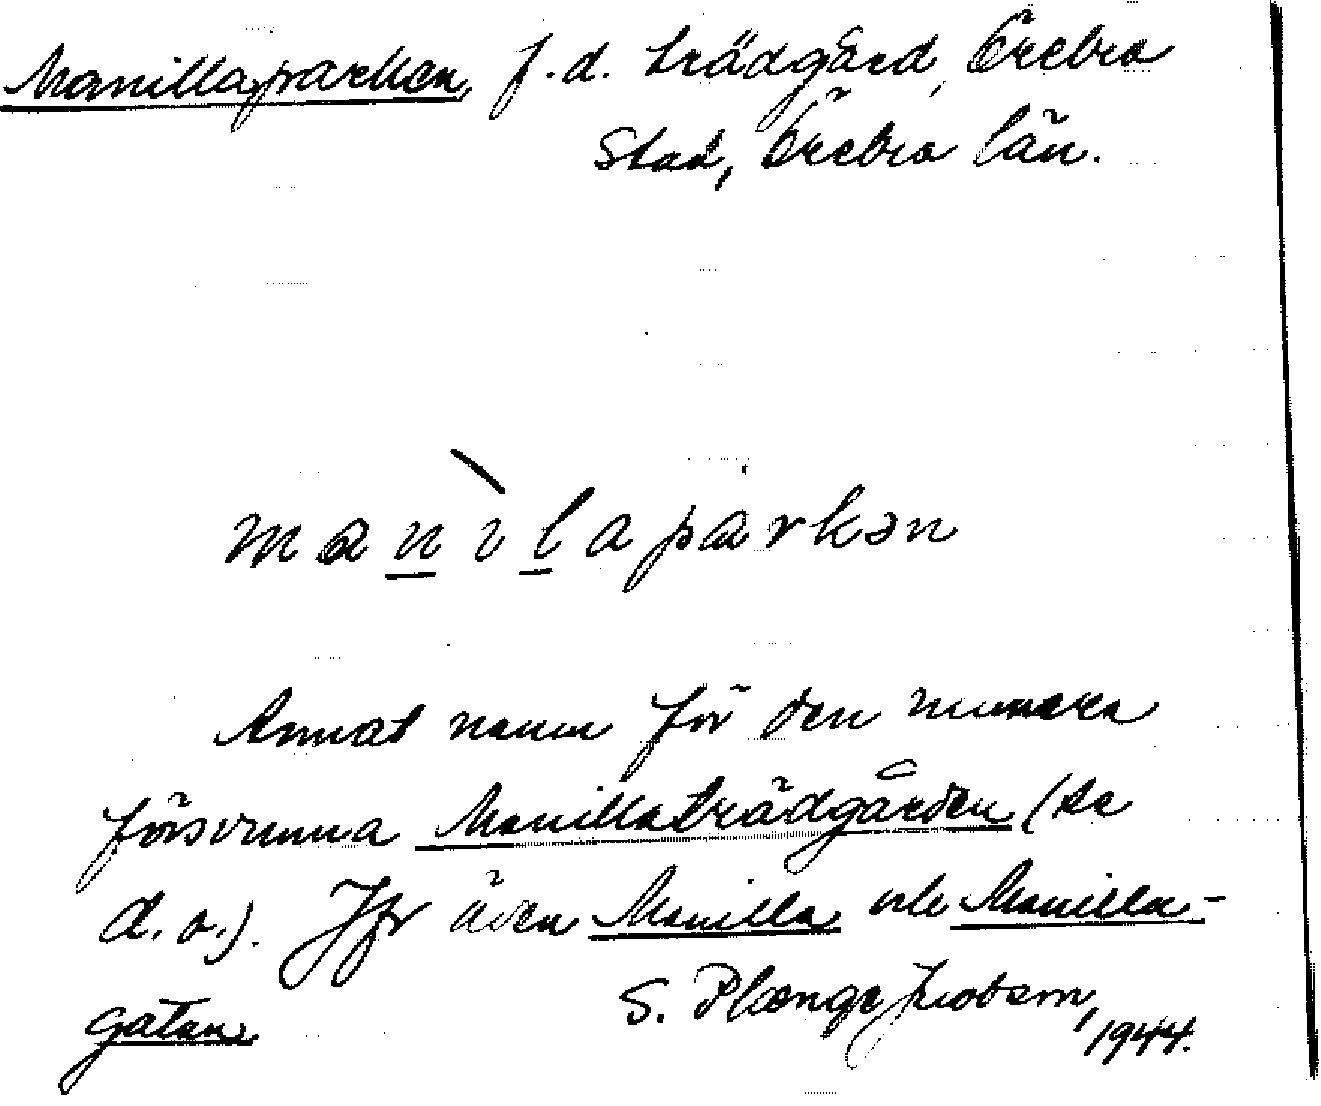 Manillaparken, f.d. trädgård, Örebro
Stad, Örebro län.
manìlaparkən
Annat namn för den numera
försvunna Manillaträdgården (se
d.o.). Jfr även Manilla och Manilla-
gatan.
S. Plænge Jacobson,
1944.